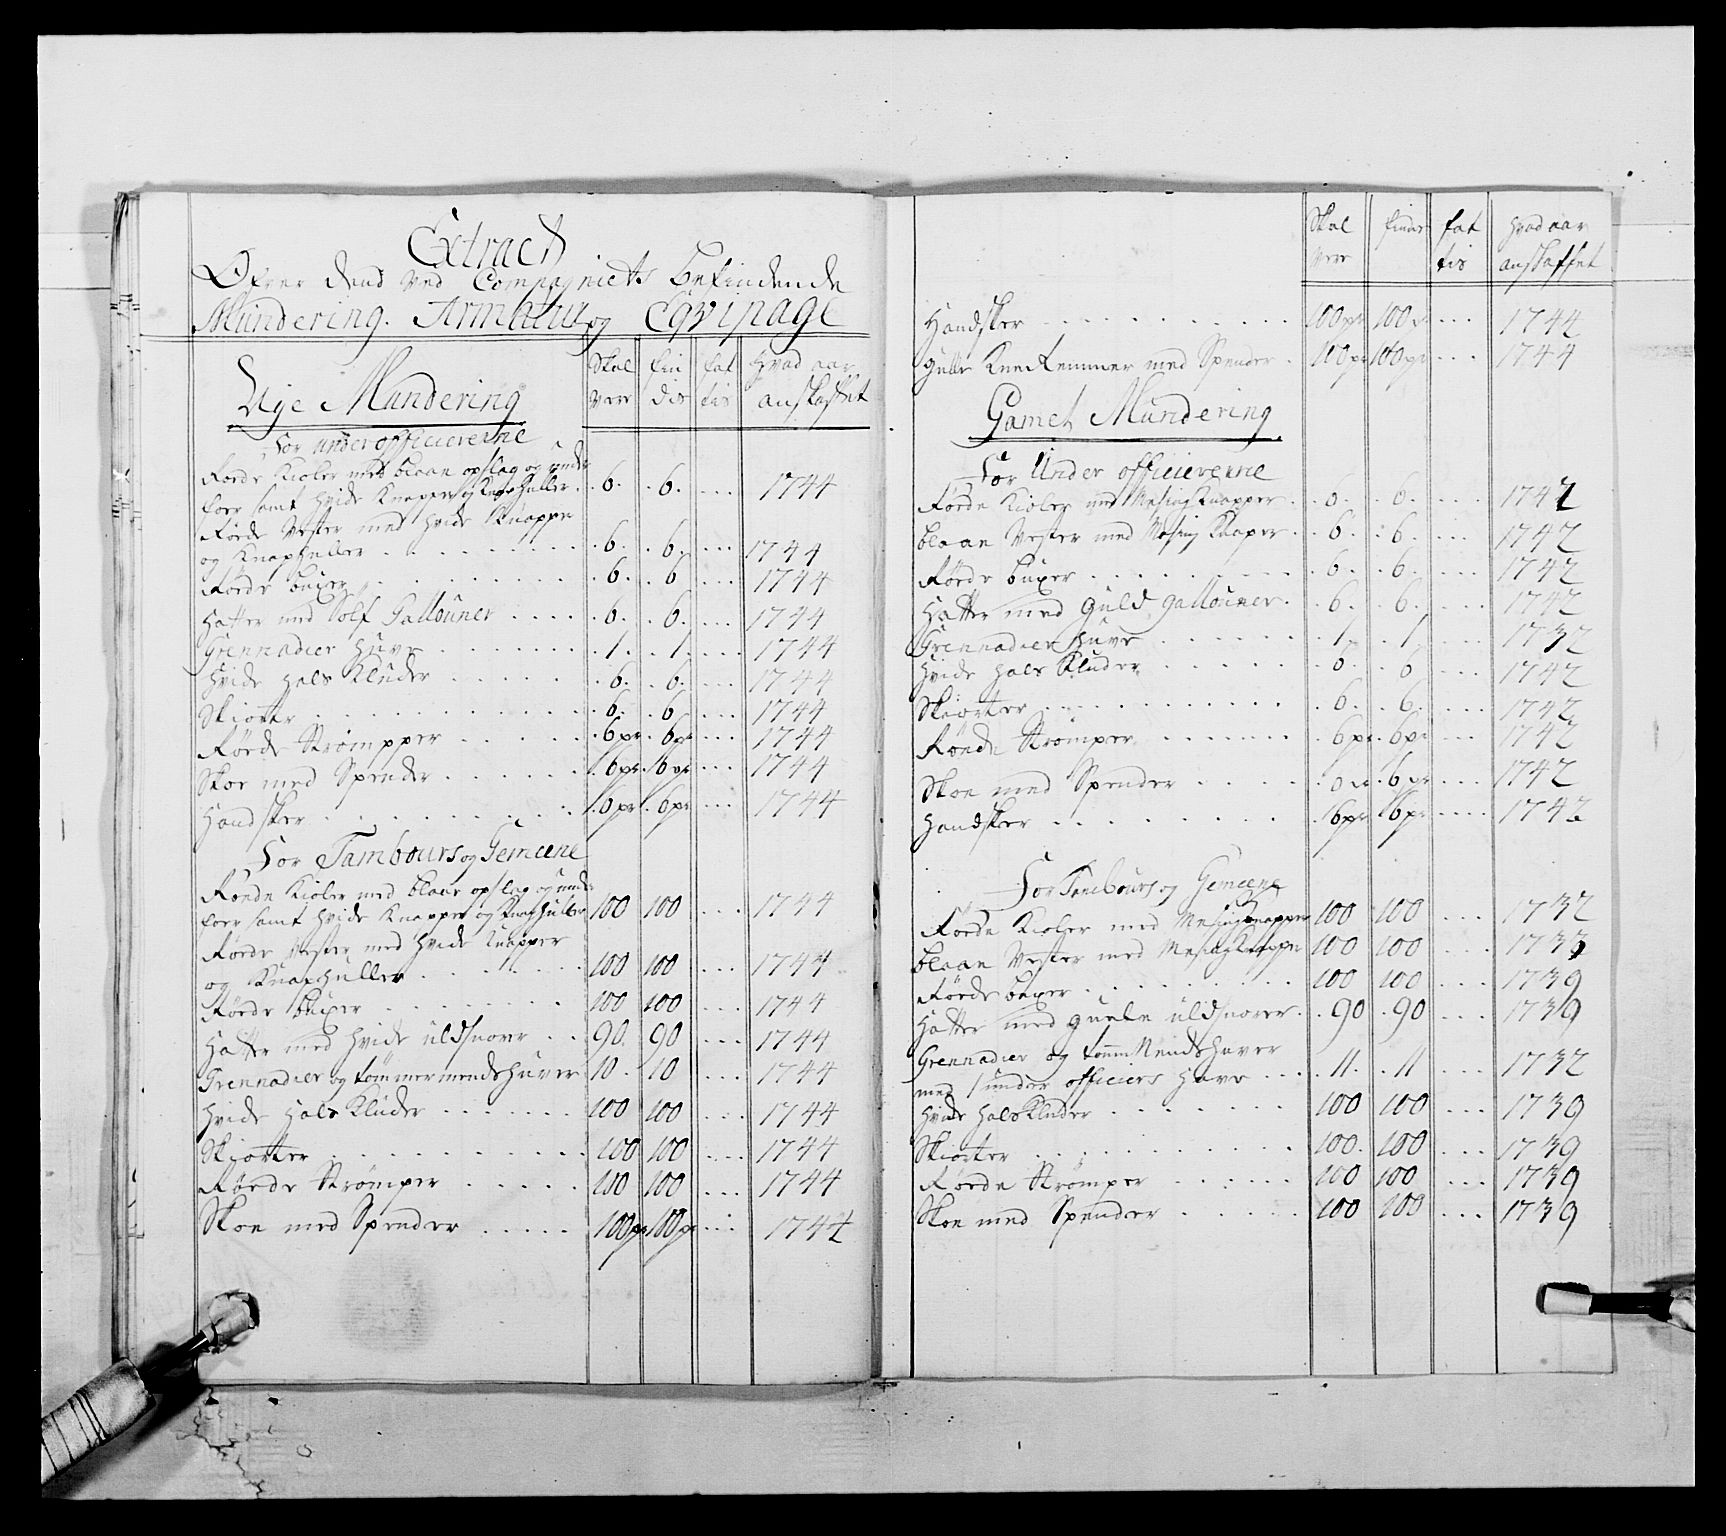 Extract
Ofver dend ved Compagniets befindende
Mundering. Armatur og Eqvipage
Skal fin fat hvad aar
Nye Mundering være dis tis anskaffet
For underofficiererne
Røde Kioler med blaae opslag og under
foer samt hvide Knapper og Knaphuller . 6. . 6. ... 1744
Røde Vester med hvide Knappe
og Knaphuller . 6. . 6. ... 1744
Røde buxer . 6. . 6 ... 1744
Hatter med Sølf Gallouner . 6. . 6. ... 1744
Grennadier huve . 1. . 1. ... 1744
hvide hals Kluder . 6. . 6. ... 1744
Skiorter . 6. . 6 ... 1744
Røde Strømpper . 6 pr . 6 pr ... 1744
Skoe med Spender . 6 pr . 6 pr ... 1744
Handsker . 6 pr . 6 pr ... 1744
For Tambours og Gemeene
Røde Kioler med blaae opslag og under
foer samt hvide Knapper og Knaphuller 100 100 ... 1744
Røde Vester med hvide Knapper
og Knaphuller 100 100 ... 1744
Røde buxer 100 100 ... 1744
Hatter med hvide uldsnorer 90. 90 ... 1744
Grennadier og tømmermendshuver 10. 10 ... 1744
hvide Hals Kluder 100 100 ... 1744
Skiorter 100 100 ... 1744
Røde Strømper 100 100 ... 1744
Skoe med Spender 100 pr 100 pr ... 1744
Skal findes fat hvad aar
være tis anskaffet
Handsker 100 pr 100 pr ... 1744
Gulle Knee Remmer med Spender 100 pr 100 pr ... 1744
Gamel Mundering
For Under officiererne
Røde Kioler med Messing Knapper . 6. . 6. ... 1742
blaae Vester med Messing Knaper . 6. . 6. ... 1742
Røde buxer . 6. . 6. ... 1742
Hatter med Guld gallouner . 6. . 6. ... 1742
Grennadier huve . 1. . 1 ... 1732
hvide hals Kluder 6. 6 ... 1742
Skiorter . 6. . 6. ... 1742
Røde Strømper . 6 pr . 6 pr ... 1742
Skoe med Spender 6 pr . 6 pr ... 1742
Handsker . 6 pr . 6 pr ... 1742
For Tambours og Gemeene
Røde Kioler med Messing Knapper 100 100 ... 1732
blaae Vester med Messing Knappe 100 100 ... 1733
Røde buxer 100 100 ... 1739
Hatter med guele uldsnorer . 90 . 90 ... 1739
Grennadier og tømmermendshuver
med 1 under officiers Huve . 11. . 11 ... 1732
hvide halsKluder 100 100 ... 1739
Skiorter 100. 100 ... 1739
Røde Strømper 100 100 ... 1739
Skoe med Spender 100 100 ... 1739